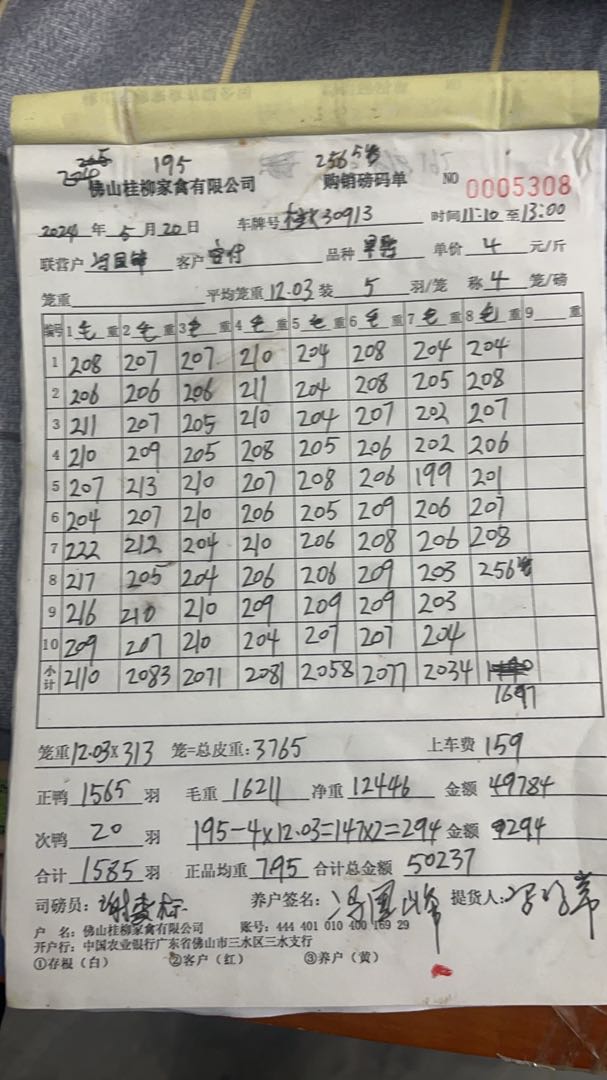 195 256 5笼
佛山桂柳家禽有限公司 购销磅码单 NO 0005308
2024 年 5 月 20 日 车牌号 30913 时间 11:10 至 13:00
联营户 客户 品种 单价 4 元/斤
笼重 平均笼重 12.03 装 5 羽/笼 称 4 笼/磅
编号 1 毛 重 2 毛 重 3 毛 重 4 毛 重 5 毛 重 6 毛 重 7 毛 重 8 毛 重 9 重
1 208 207 207 210 204 208 204 204
2 206 206 206 211 204 208 205 208
3 211 207 205 210 204 207 202 207
4 210 209 205 208 205 206 202 206
5 207 213 210 207 208 206 199 201
6 204 207 210 206 205 209 206 207
7 222 212 204 210 206 208 206 208
8 217 205 204 206 206 209 203 256
9 216 210 210 209 209 209 203
10 209 207 210 204 207 207 204
小计 2110 2083 2071 2081 2058 2077 2034
1697
笼重 12.03X 313 笼=总皮重: 3765 上车费 159
正鸭 1565 羽 毛重 16211 净重 12446 金额 49784
次鸭 20 羽 195-4X12.03=147X2=294 金额 294
合计 1585 羽 正品均重 7.95 合计总金额 50237
司磅员: 养户签名: 提货人:
户 名: 佛山桂柳家禽有限公司 账号: 444 401 010 400 169 29
开户行: 中国农业银行广东省佛山市三水区三水支行
①存根(白) ②客户(红) ③养户(黄)